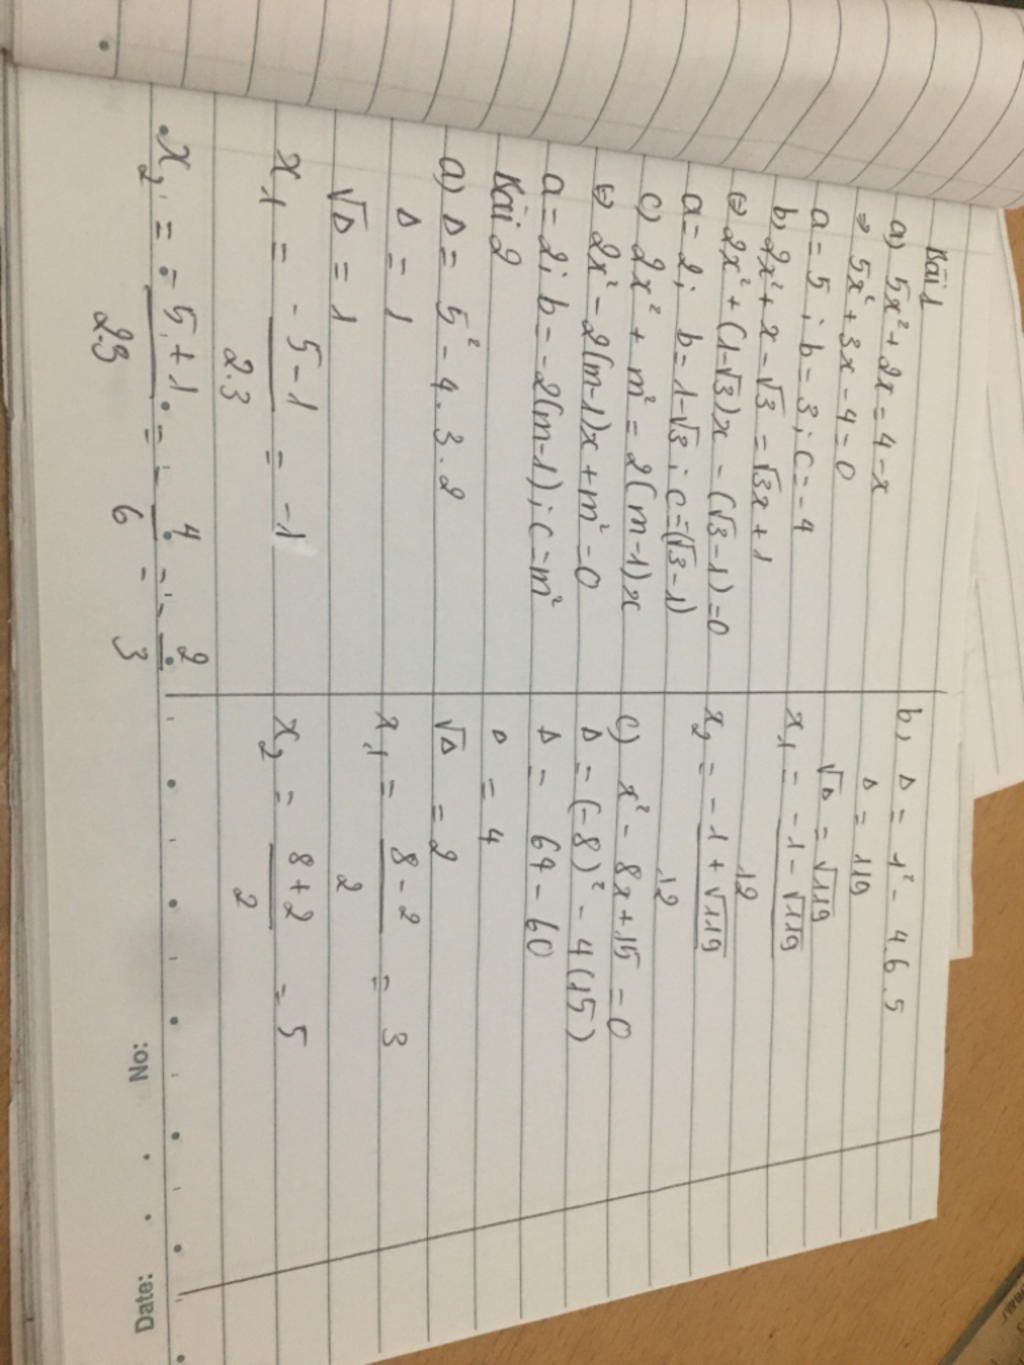 Bài 1
a) 5x² + 2x = 4 - x
⇒ 5x² + 3x - 4 = 0
a = 5 ; b = 3 ; c = -4
b, 2x² + x - √3 = √3x + 1
⇔ 2x² + (1-√3)x - (√3-1) = 0
a = 2; b = 1-√3 ; c = (√3-1)
c) 2x² + m² = 2(m-1)x
⇔ 2x² - 2(m-1)x + m² = 0
a = 2; b = -2(m-1) ; c = m²
Bài 2
a) Δ = 5² - 4.3.2
Δ = 1
√Δ = 1
x₁ = (-5-1)/(2.3) = -1
x₂ = (-5+1)/(2.3) = -4/6 = -2/3
b, Δ = 1² - 4.6.5
Δ = 119
√Δ = √119
x₁ = (-1-√119)/12
x₂ = (-1+√119)/12
c) x² - 8x + 15 = 0
Δ = (-8)² - 4(15)
Δ = 64 - 60
Δ = 4
√Δ = 2
x₁ = (8-2)/2 = 3
x₂ = (8+2)/2 = 5
No:
Date: